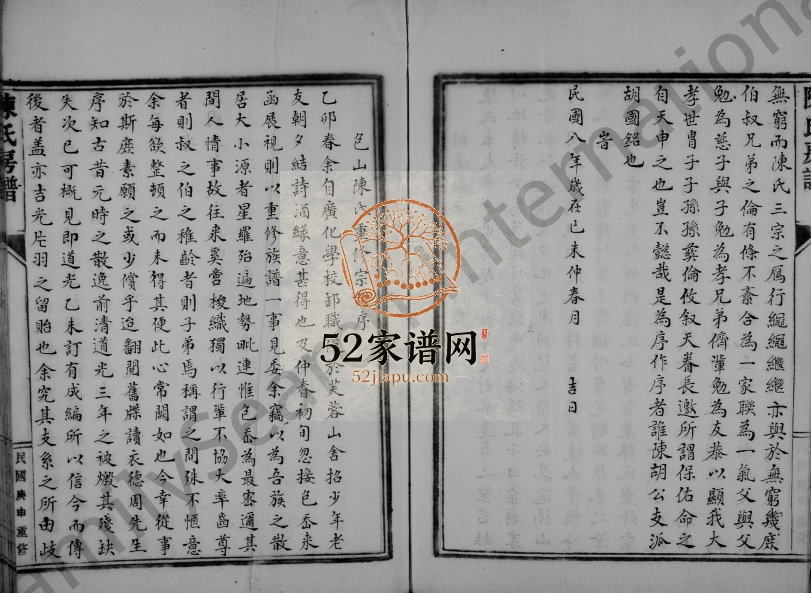 無窮而陳氏三宗之鴈行繩繩繼繼亦與於無窮幾庶
伯叔兄弟之倫有條不紊合為一家聯為一氣父與父
勉為慈子與子勉為孝兄弟儕輩勉為友恭以顯我大
孝世胄子子孫孫彝倫攸叙天眷長邀所謂保佑命之
自天申之也豈不懿哉是為序作序者誰陳胡公支派
胡國銘也
旹
民國八年歲在己未仲春月 吉日
色山陳氏重修宗 序
乙卯春余自廣化學校卸職 於芙蓉山舍招少年老
友朝夕結詩酒緣意甚得也及仲春初旬忽接色岙來
函展視則以重修族譜一事見委余竊以為吾族之散
居大小源者星羅殆遍地勢毗連惟色岙為最密邇其
間人情事故往來奚啻梭織獨以行軰不協大率齒尊
者則叔之伯之稚齡者則子弟焉稱謂之間殊不愜意
余每欲整頓之而未得其便此心常闕如也今幸從事
於斯庶素願之或少償乎迨翻閱舊牒讀衣德周先生
序知古昔元時之散逸前清道光三年之被燬其殘缺
失次已可概見即道光乙未訂有成編所以信今而傳
後者蓋亦吉光片羽之留貽也余究其支系之所由歧
陳氏房譜
民國庚申重修
陳氏房譜
52家谱网
52jiapu.com
FamilySearch International